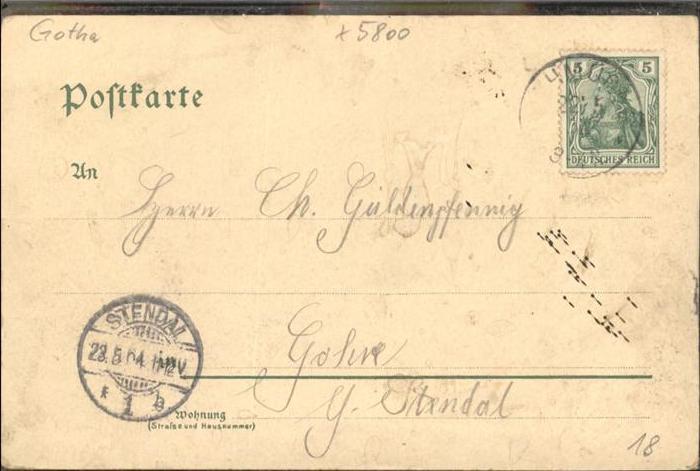 Gotha x 5800
Postkarte
5 5
DEUTSCHES REICH
An
Herrn Ch. Güldenpfennig
STENDAL
23.5.04. 11-12V.
* 1 b
Gohre
b. Stendal
Wohnung
(Straße und Hausnummer)
18